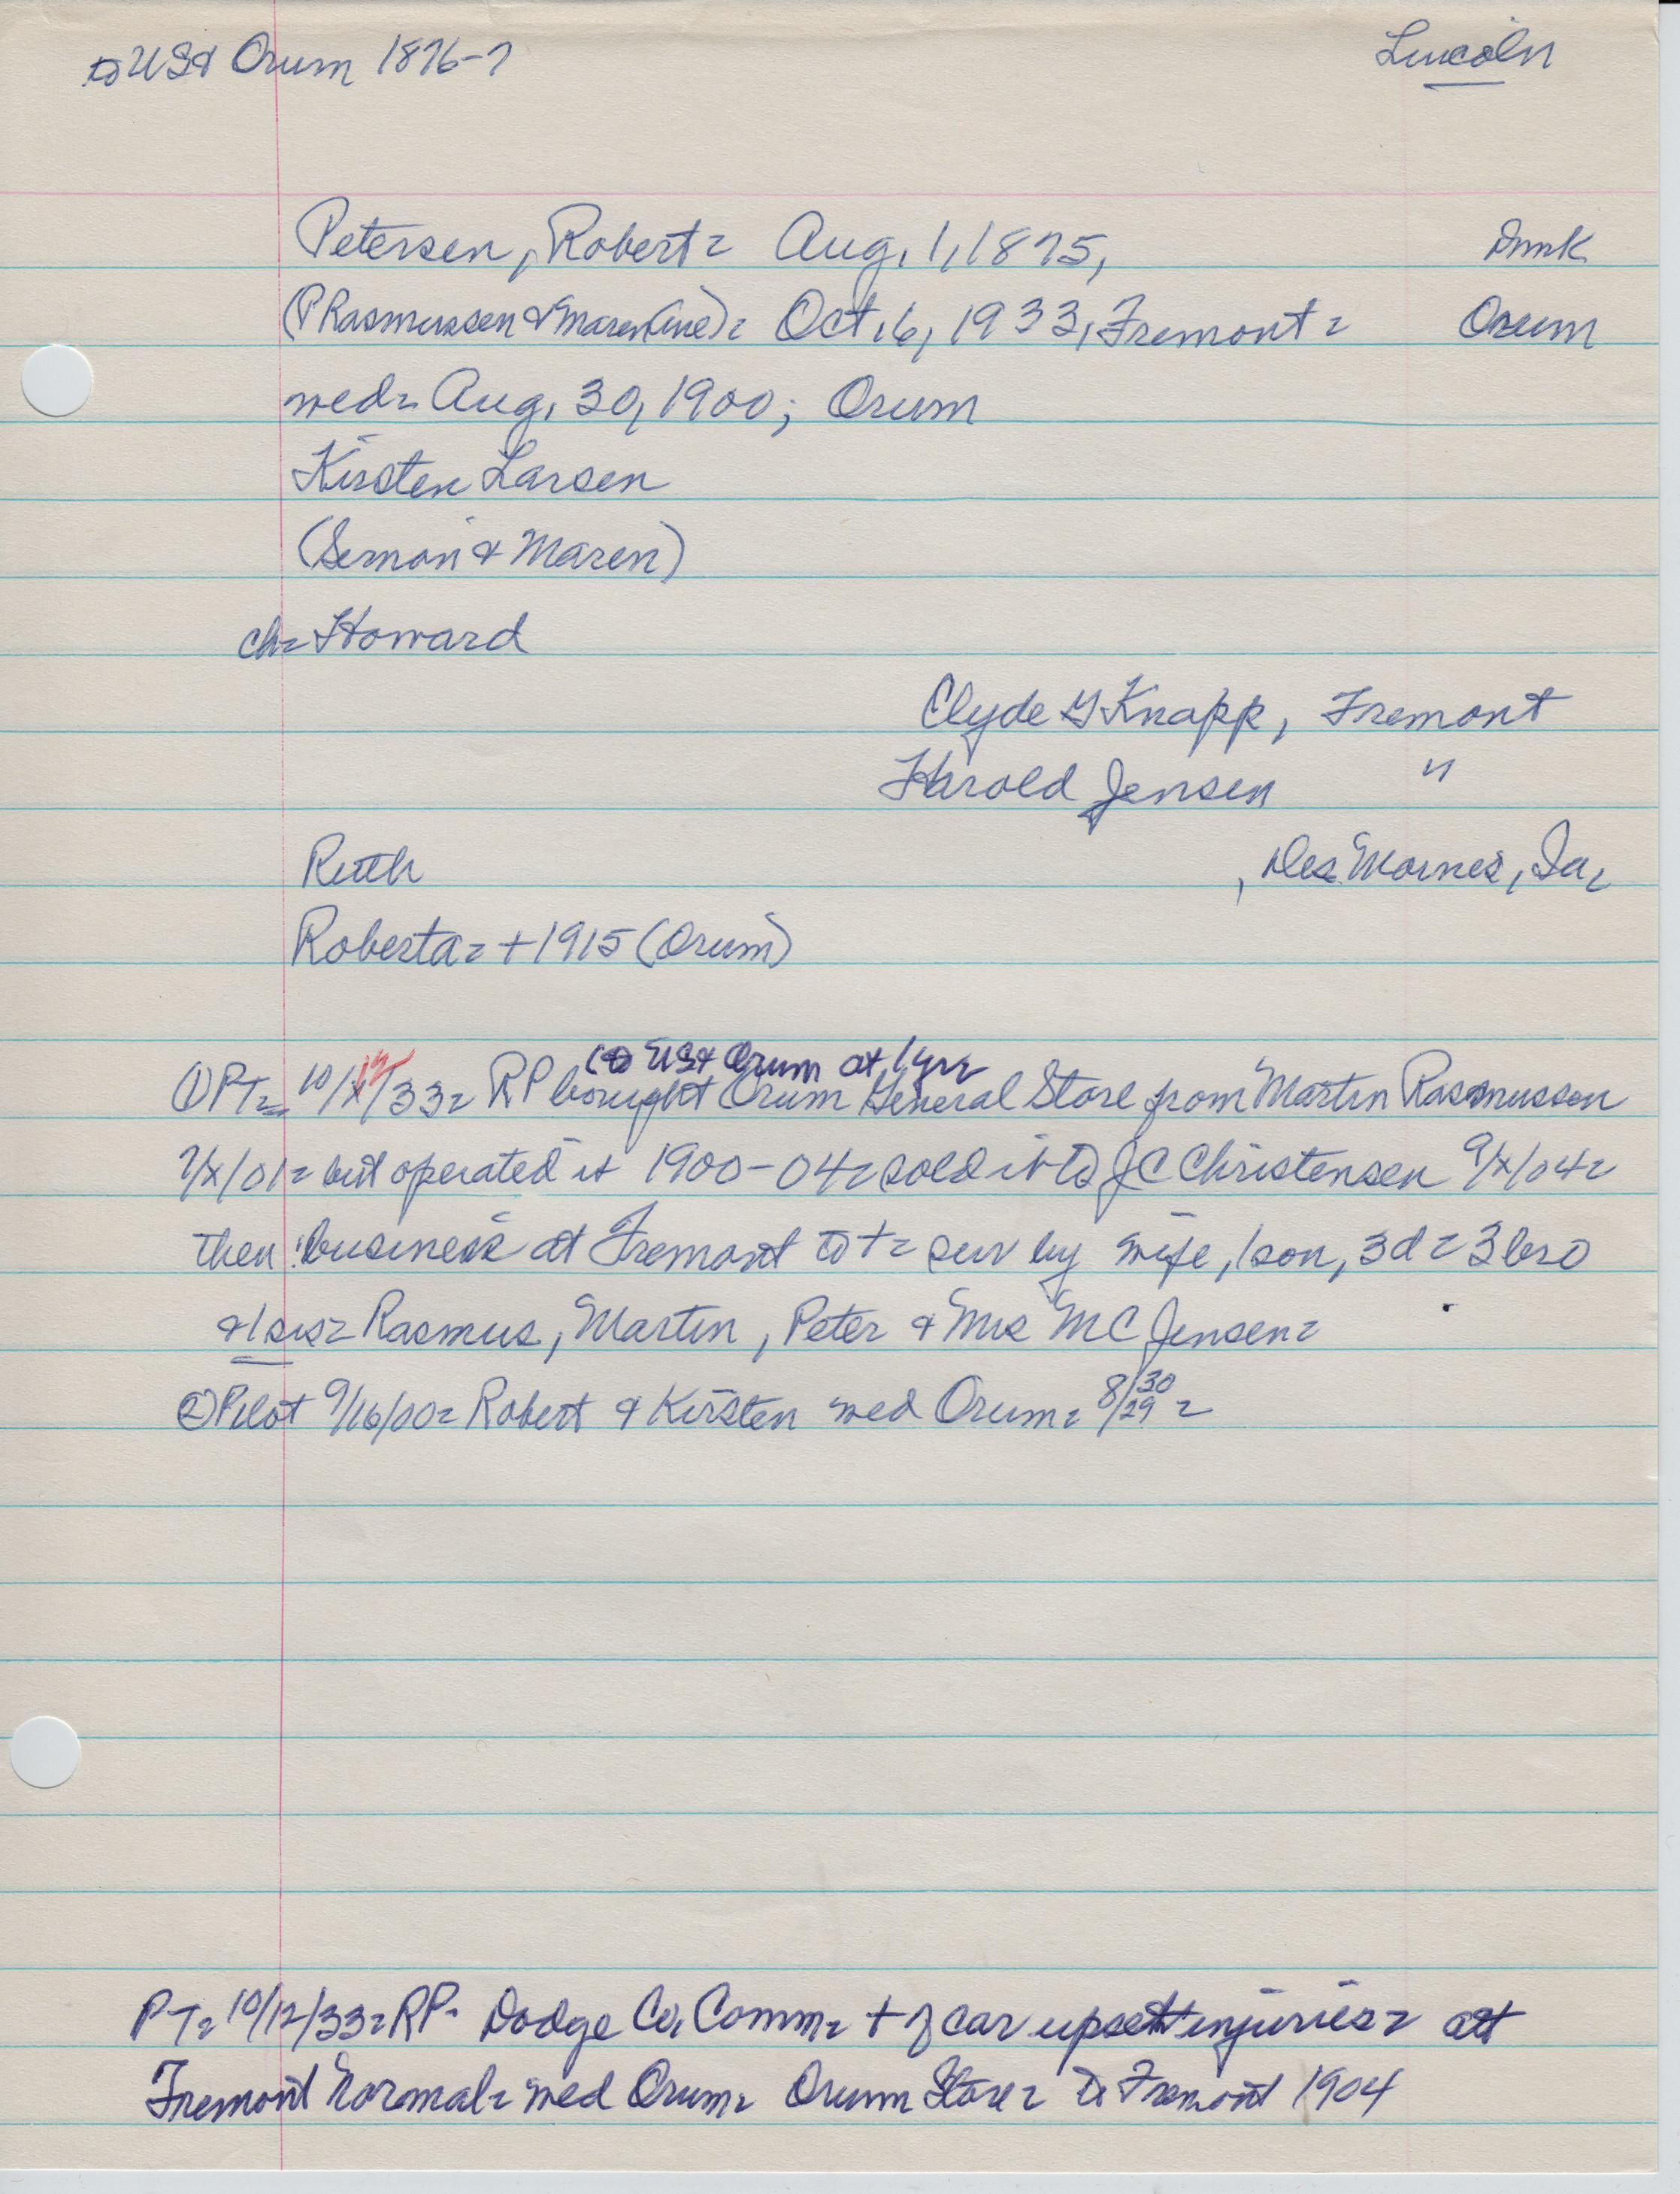 to US & Orum 1876-7
Lincoln
Petersen, Robert = Aug. 1, 1875, Dnmk
(P Rasmussen & Maren (ine)) = Oct. 6, 1933, Fremont = Orum
wed = Aug. 30, 1900; Orum
Kirsten Larsen
(Semon & Maren)
ch = Howard
Clyde G Knapp, Fremont
Harold Jensen "
Ruth , Des Moines, Ia.
Roberta = + 1915 (Orum)
(to US & Orum at 1 yr =
① PT = 10/12/33 = RP bought Orum General Store from Martin Rasmussen
/x/01 = but operated it 1900-04 = sold it to J C Christensen 9/x/04 =
then business at Fremont to + = surv by wife, 1 son, 3 d = 3 bro
& 1 sis = Rasmus, Martin, Peter & Mrs M C Jensen =
② Pilot 9/16/00 = Robert & Kirsten wed Orum = 8/30 29 =
PT = 10/12/33 = RP = Dodge Co. Comm = + of car upset injuries = att
Fremont Normal = wed Orum = Orum Store = to Fremont 1904